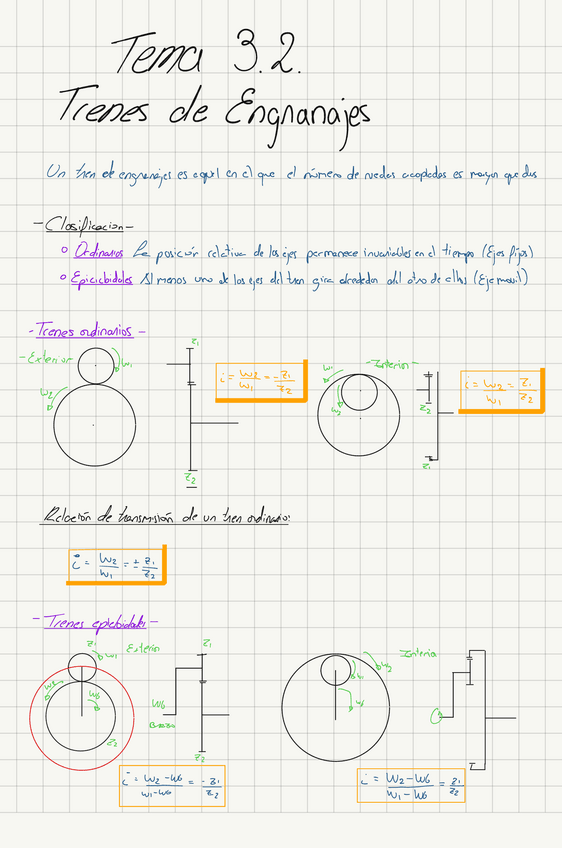 Tema 3.2.
Trenes de Engranajes
Un tren de engranajes es aquel en el que el número de ruedas acopladas es mayor que dos
- Clasificacion -
Ordinarios La posición relativa de los ejes permanece invariables en el tiempo (Ejes fijos)
Epicicloidales Al menos uno de los ejes del tren gira alrededor del otro de ellos (Eje movil)
- Trenes ordinarios -
- Exterior
w1
w2
z1
z2
i = w2/w1 = -z1/z2
- Interior -
w1
w2
z2
z1
i = w2/w1 = z1/z2
Relación de transmisión de un tren ordinario:
i = w2/w1 = ± z1/z2
- Trenes epicicloidales -
z1
w1
Exterior
w2
w6
z2
z1
w6
Brazo
z2
i = w2-w6/w1-w6 = -z1/z2
w2
Interior
i = w2-w6/w1-w6 = z1/z2